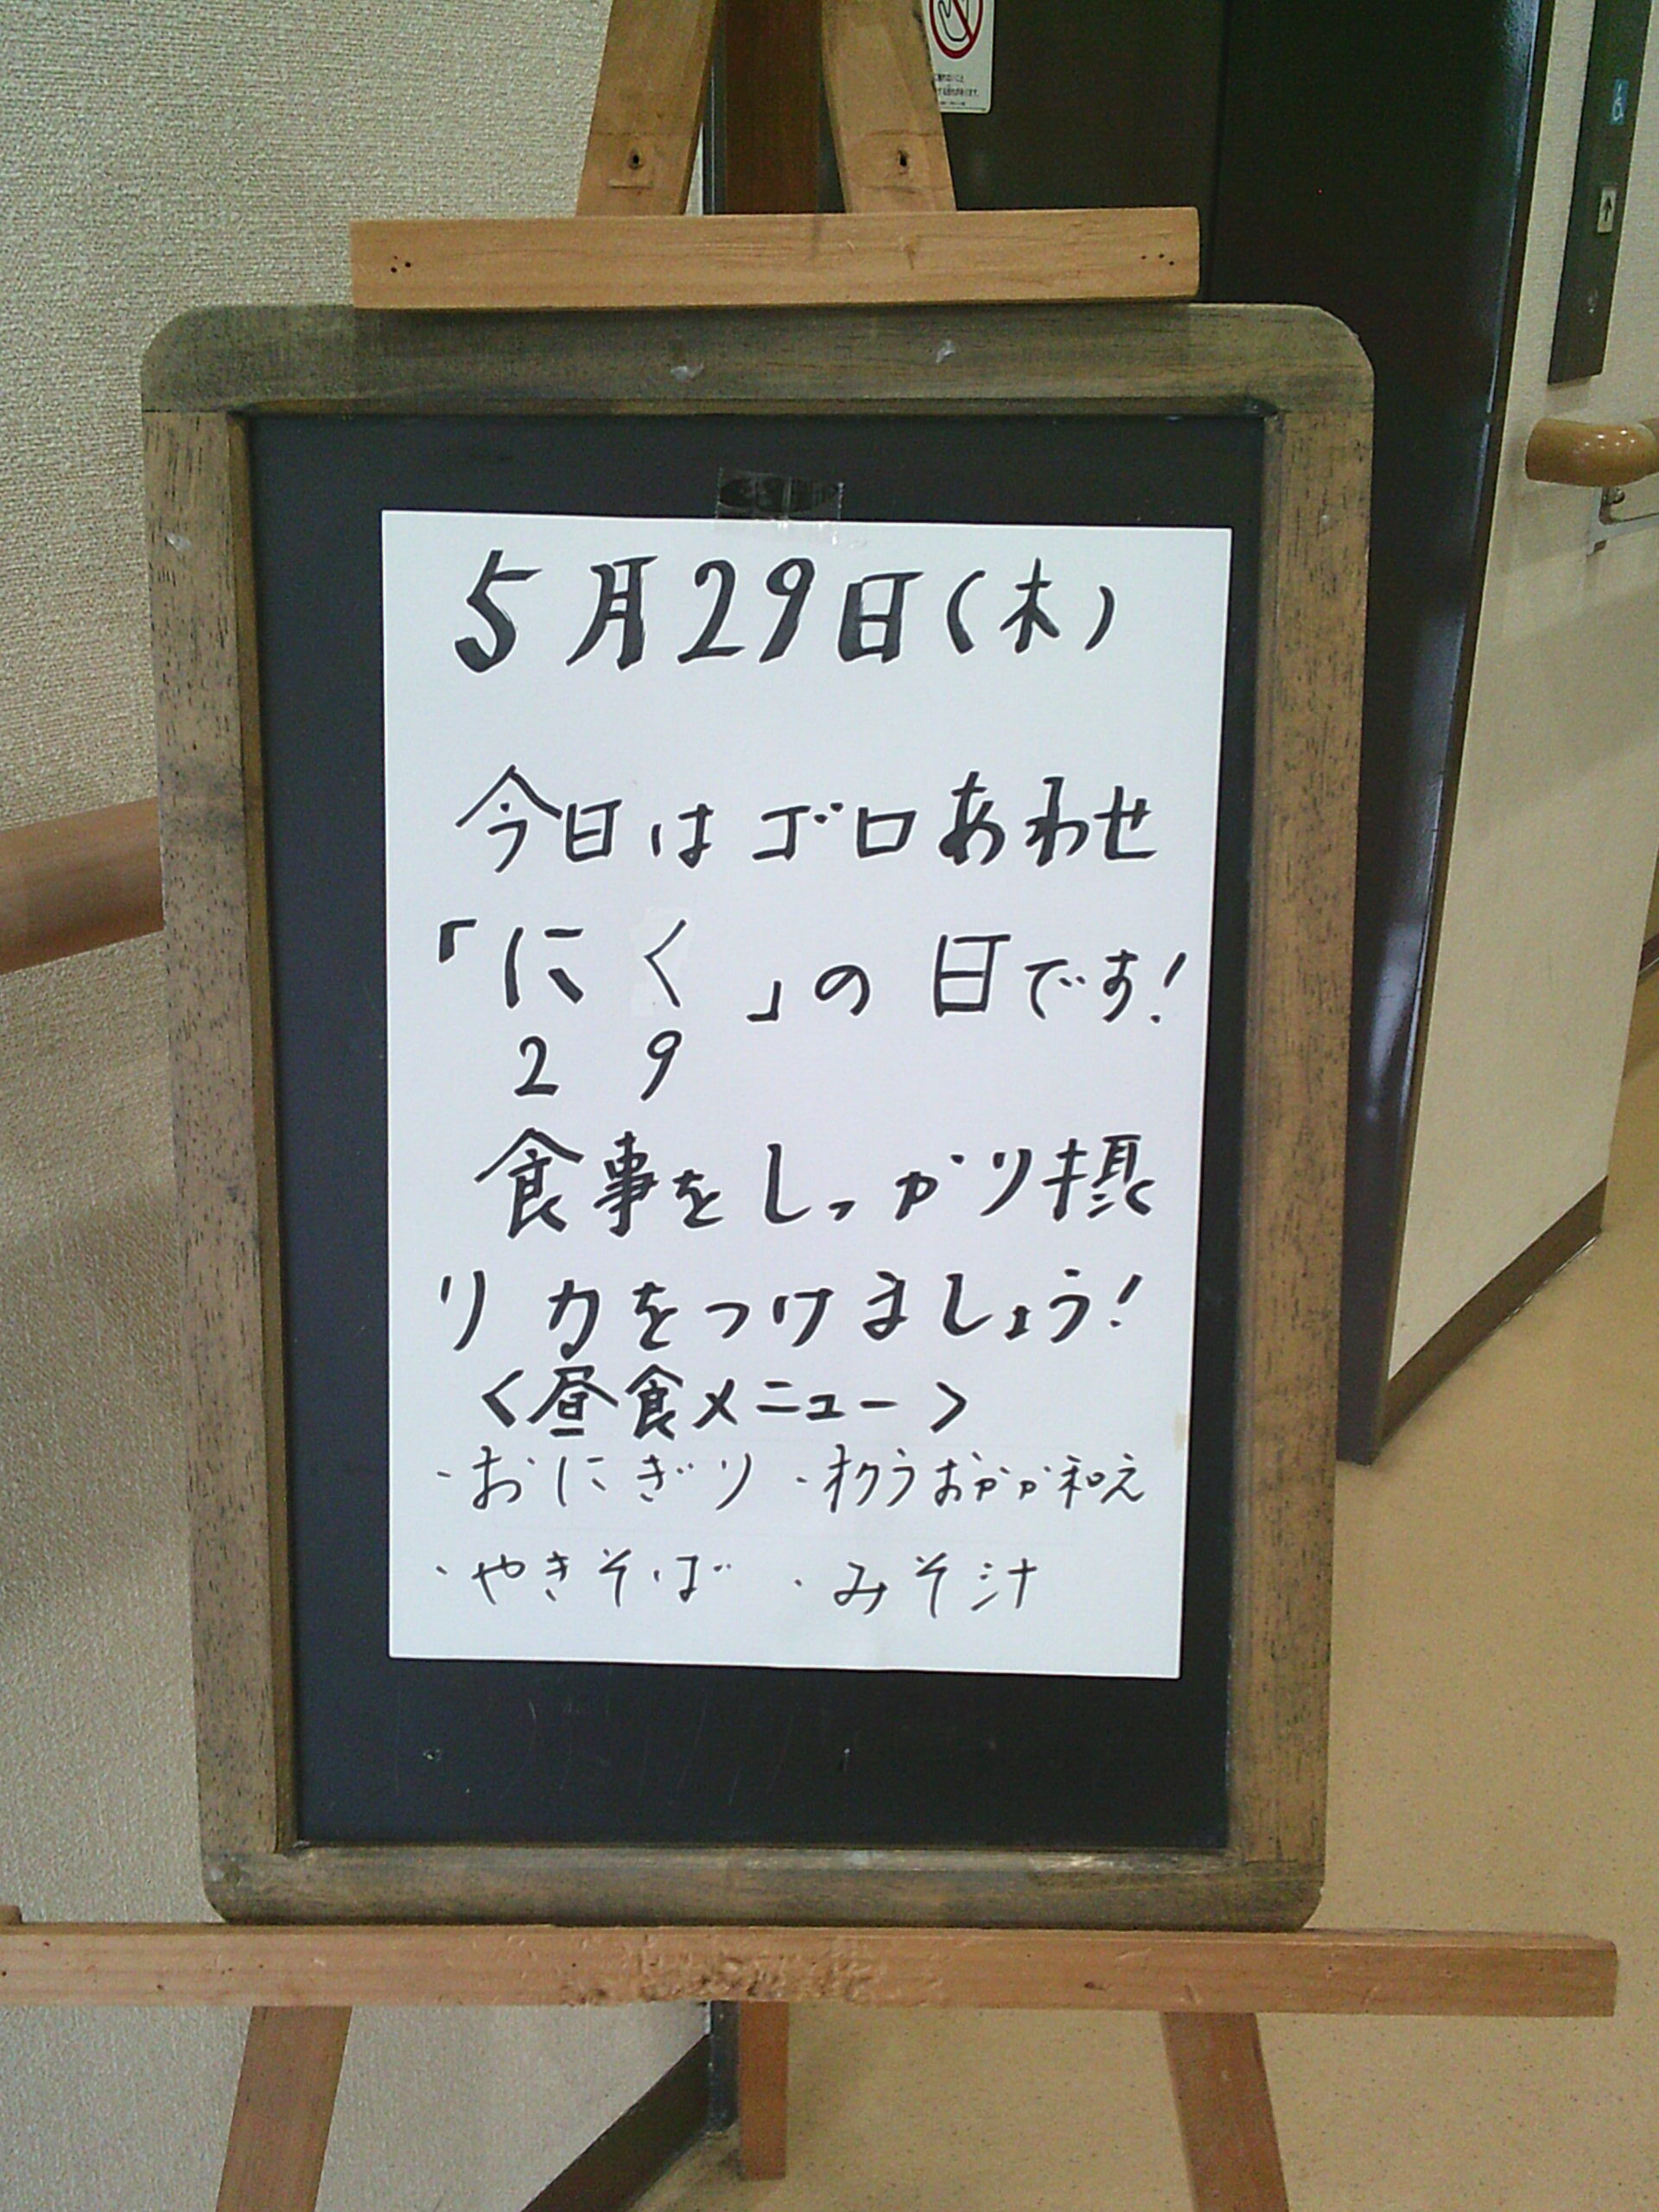 5月29日(木)
今日はゴロあわせ
「にく」の日です!
2 9
食事をしっかり摂
り力をつけましょう!
<昼食メニュー>
・おにぎり ・オクラおかか和え
・やきそば ・みそ汁